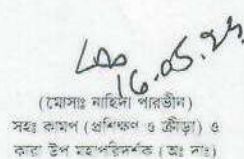 16.05.23
(মোসাঃ নাহিদা পারভীন)
সহঃ কমান্ড (প্রশিক্ষণ ও ক্রীড়া) ও
কারা উপ মহাপরিদর্শক (অঃ দাঃ)